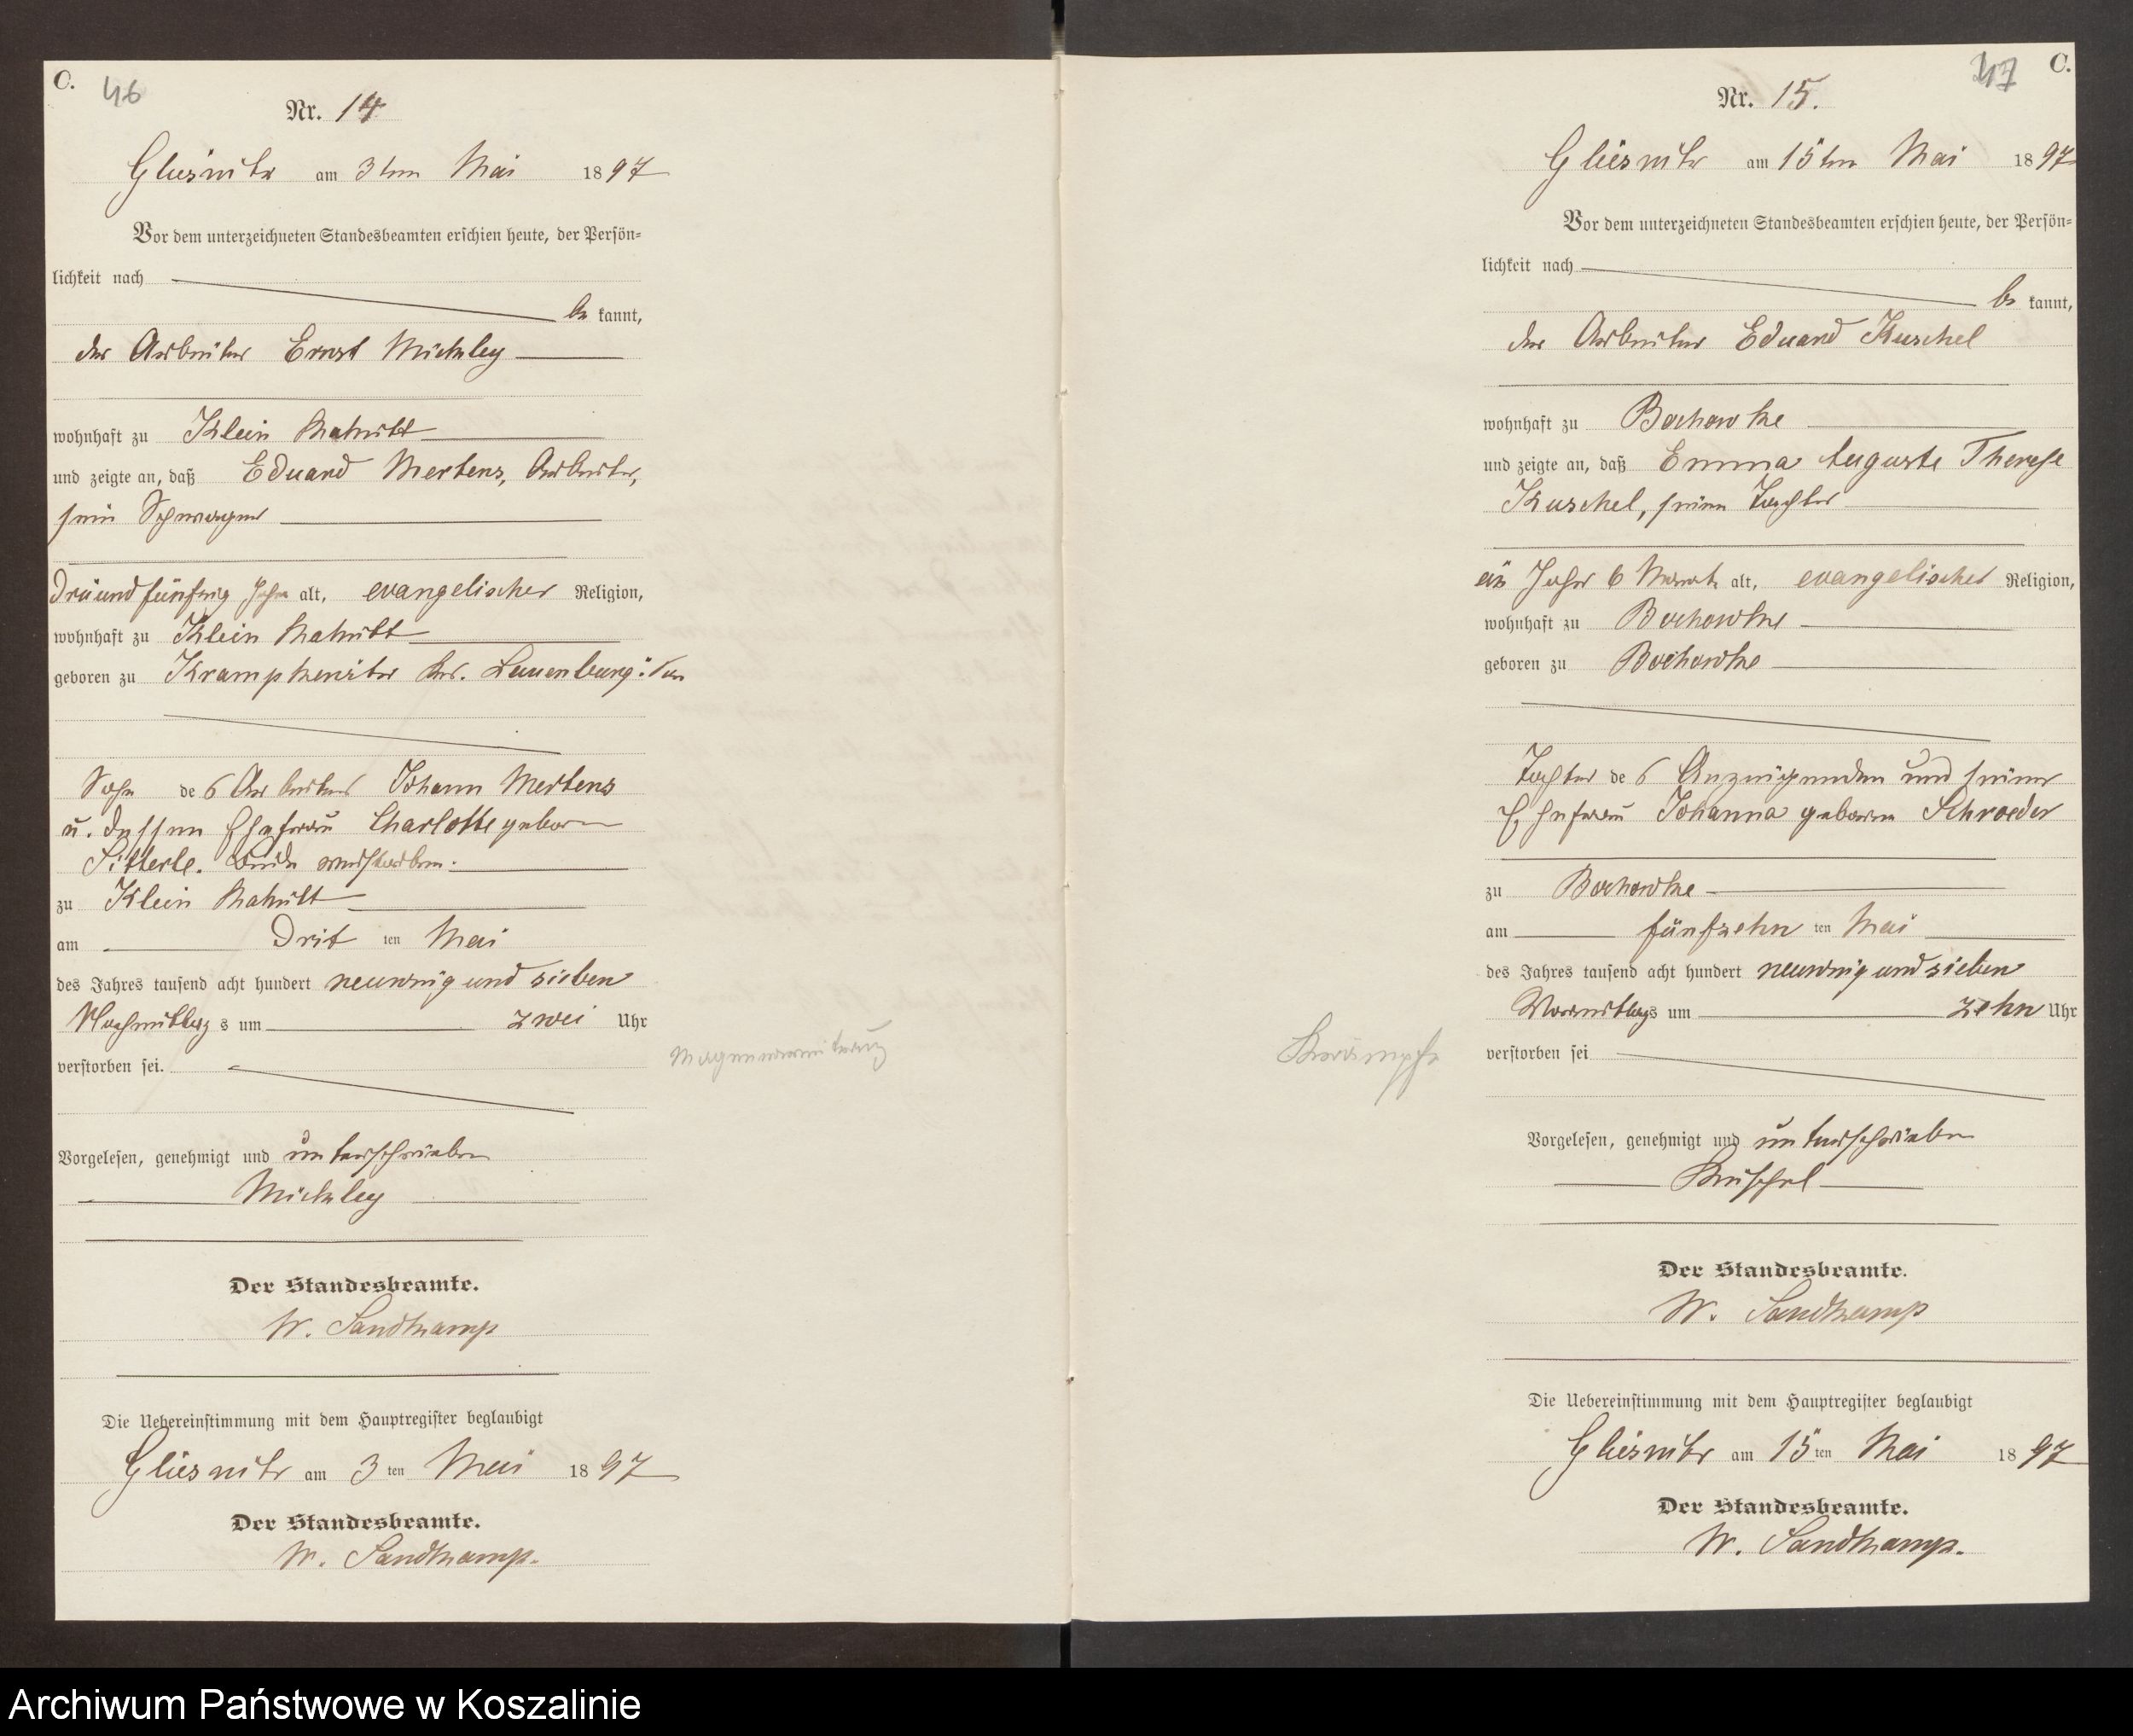 C.
46
Nr. 14
Gliesnitz am 3ten Mai 1897
Vor dem unterzeichneten Standesbeamten erschien heute, der Persön=
lichkeit nach
be kannt,
der Arbeiter Ernst Michley
wohnhaft zu Klein
und zeigte an, daß Eduard Mertens, Arbeiter,
sein Schwager
dreiundfünfzig Jahre alt, evangelischer Religion,
wohnhaft zu Klein
geboren zu Krampkewitz Kr. Lauenburg i/Pom
Sohn des Arbeiters Johann Mertens
u. dessen Ehefrau Charlotte geboren
beide verstorben.
zu Klein
am Drit ten Mai
des Jahres tausend acht hundert neunzig und sieben
Nachmittags um zwei Uhr
verstorben sei.
Vorgelesen, genehmigt und unterschrieben
Michley
Der Standesbeamte.
W. Sandkamp
Die Uebereinstimmung mit dem Hauptregister beglaubigt
Gliesnitz am 3 ten Mai 1897
Der Standesbeamte.
W. Sandkamp.
47
C.
Nr. 15.
Gliesnitz am 15ten Mai 1897
Vor dem unterzeichneten Standesbeamten erschien heute, der Persön=
lichkeit nach
be kannt,
der Arbeiter Eduard Kuschel
wohnhaft zu Bochowke
und zeigte an, daß Emma Auguste Therese
Kuschel, seine Tochter
ein Jahr 6 Monate alt, evangelischer Religion,
wohnhaft zu Bochowke
geboren zu Bochowke
Tochter des Anzeigenden und seiner
Ehefrau Johanna geborne Schroeder
zu Bochowke
am fünfzehn ten Mai
des Jahres tausend acht hundert neunzig und sieben
Vormittags um zehn Uhr
Krämpfe
verstorben sei
Vorgelesen, genehmigt und unterschrieben
Kuschel
Der Standesbeamte.
W. Sandkamp
Die Uebereinstimmung mit dem Hauptregister beglaubigt
Gliesnitz am 15 ten Mai 1897
Der Standesbeamte.
W. Sandkamp.
Archiwum Państwowe w Koszalinie